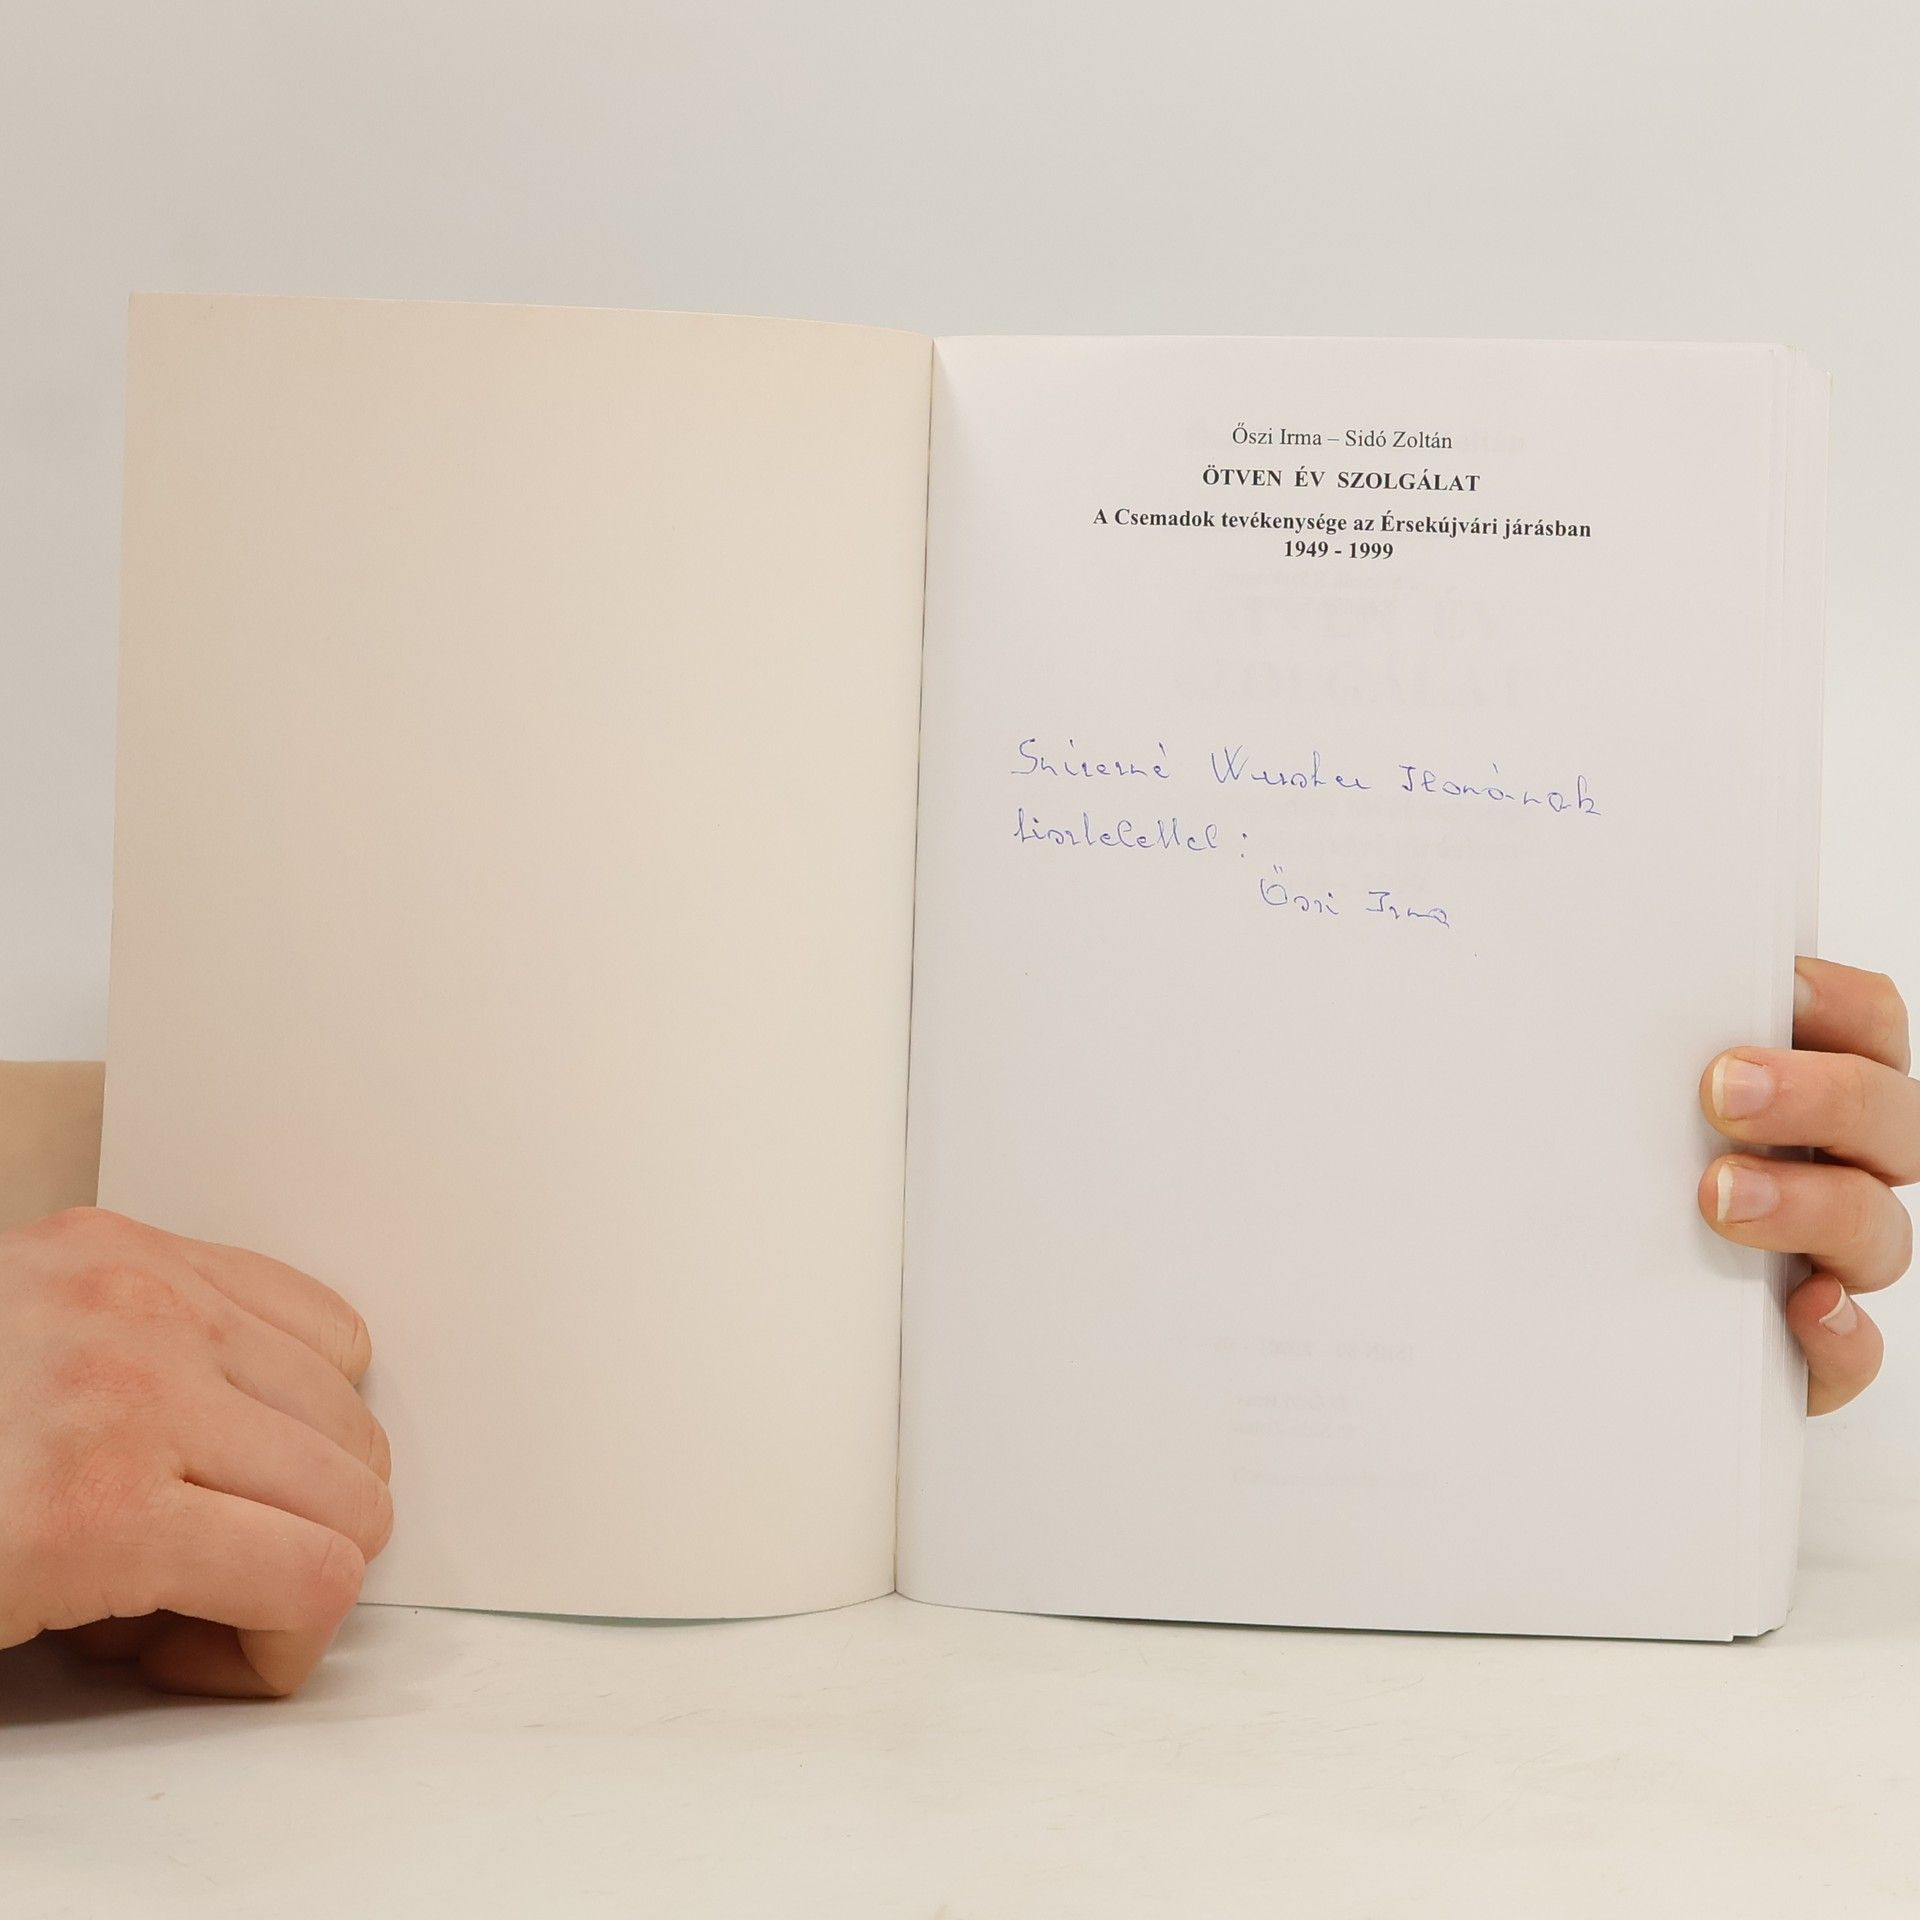 Őszi Irma – Sidó Zoltán
ÖTVEN ÉV SZOLGÁLAT
A Csemadok tevékenysége az Érsekújvári járásban
1949 - 1999
Ilonának
tisztelettel :
Őszi Irma